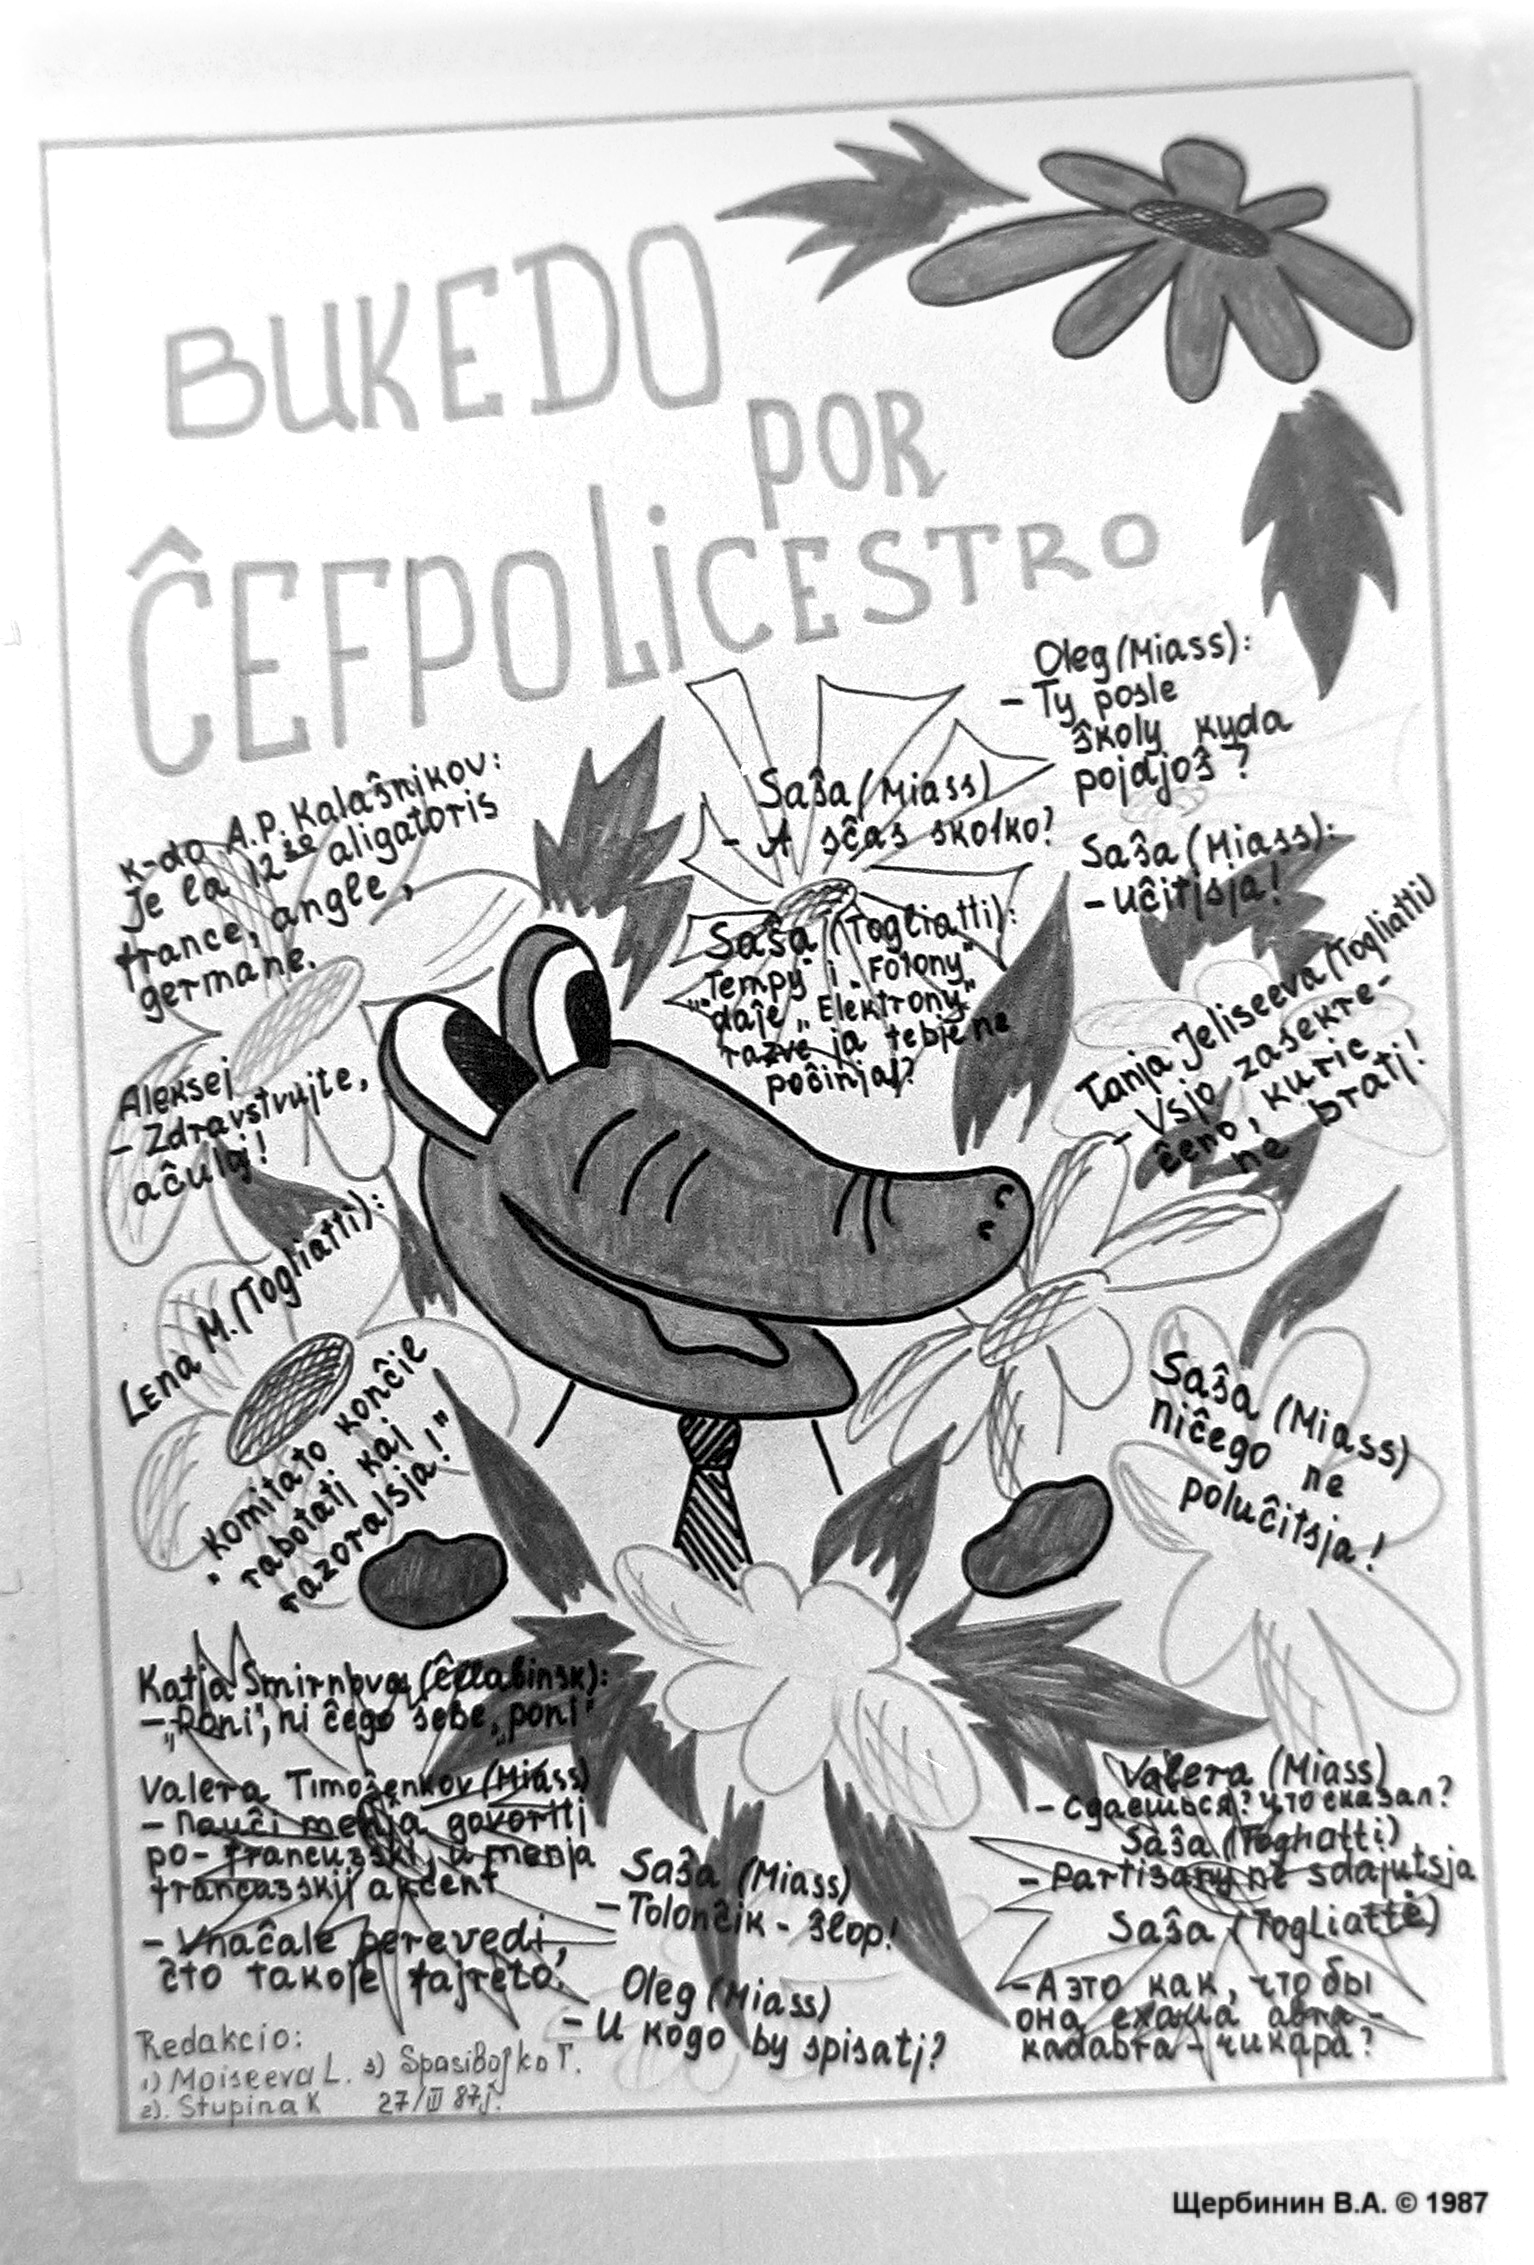 BUKEDO
POR
ĈEFPOLICESTRO
k-do A.P. Kalaŝnikov:
Je la 12ªª aligatoris
france, angle,
germane.
Aleksej
- Zdravstvujte,
aĉuloj!
Lena M. (Togliatti):
"Komitato konĉie
rabotatj kaj
razoralsja!"
Katja Smirnova (Ĉelabinsk):
- "Poni", ni ĉego sebe, "poni"
Valera Timoŝenkov (Miass)
- Nauĉi menja govoritj
po-francusski, u menja
francusskij akcent
- Vnaĉale perevedi,
ĉto takoje fajreto.
Saŝa (Miass)
- A sĉas skolko?
Saŝa (Togliatti):
"Tempy" i "Fotony"
daĵe "Elektrony"
razve ja tebje ne
poĉinjal?
Oleg (Miass):
- Ty posle
ŝkoly kyda
pojdjoŝ?
Saŝa (Miass):
- Uĉitjsja!
Tanja Jeliseeva (Togliatti)
- Vsjo zasekre-
ĉeno, kuric
ne bratj!
Saŝa (Miass)
niĉego ne
poluĉitsja!
Saŝa (Miass)
- Tolonĉik - ŝlop!
Oleg (Miass)
- U kogo by spisatj?
Valera (Miass)
- Сдаешься? что сказал?
Saŝa (Togliatti)
- Partizany ne sdajutsja
Saŝa (Togliatti)
- А это как, что бы
она ехала авра-
кадабра - чикара?
Redakcio:
1) Moiseeva L. 3) Spasibojko T.
2). Stupina K 27/III 87j.
Щербинин В.А. © 1987